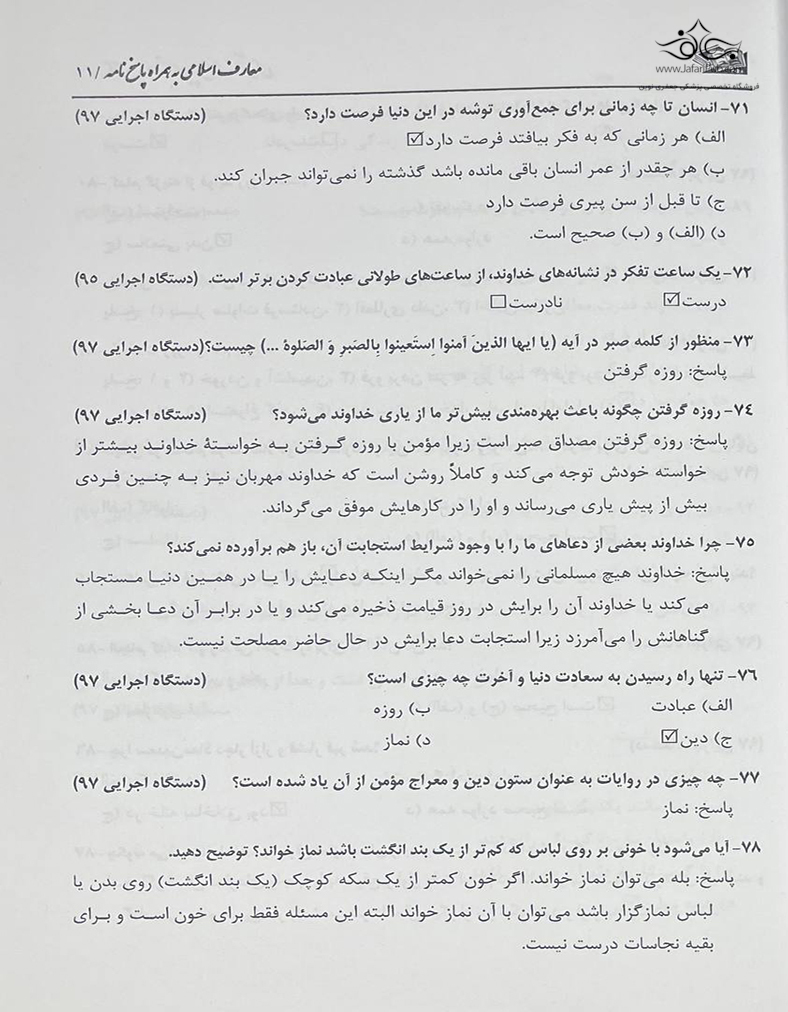 معارف اسلامی به همراه پاسخ نامه / ۱۱
www.Jafari
فروشگاه تخصصی پزشکی جعفری نوین
۷۱- انسان تا چه زمانی برای جمع‌آوری توشه در این دنیا فرصت دارد؟ (دستگاه اجرایی ۹۷)
الف) هر زمانی که به فکر بیافتد فرصت دارد☑
ب) هر چقدر از عمر انسان باقی مانده باشد گذشته را نمی‌تواند جبران کند.
ج) تا قبل از سن پیری فرصت دارد
د) (الف) و (ب) صحیح است.
۷۲- یک ساعت تفکر در نشانه‌های خداوند، از ساعت‌های طولانی عبادت کردن برتر است. (دستگاه اجرایی ۹۵)
درست☑ نادرست☐
۷۳- منظور از کلمه صبر در آیه (یا ایها الذینَ آمنوا اِستَعینوا بِالصَبرِ وَ الصَلوهٔ ...) چیست؟(دستگاه اجرایی ۹۷)
پاسخ: روزه گرفتن
۷۴- روزه گرفتن چگونه باعث بهره‌مندی بیش‌تر ما از یاری خداوند می‌شود؟ (دستگاه اجرایی ۹۷)
پاسخ: روزه گرفتن مصداق صبر است زیرا مؤمن با روزه گرفتن به خواستهٔ خداوند بیشتر از
خواسته خودش توجه می‌کند و کاملاً روشن است که خداوند مهربان نیز به چنین فردی
بیش از پیش یاری می‌رساند و او را در کارهایش موفق می‌گرداند.
۷۵- چرا خداوند بعضی از دعاهای ما را با وجود شرایط استجابت آن، باز هم برآورده نمی‌کند؟
پاسخ: خداوند هیچ مسلمانی را نمی‌خواند مگر اینکه دعایش را یا در همین دنیا مستجاب
می‌کند یا خداوند آن را برایش در روز قیامت ذخیره می‌کند و یا در برابر آن دعا بخشی از
گناهانش را می‌آمرزد زیرا استجابت دعا برایش در حال حاضر مصلحت نیست.
۷۶- تنها راه رسیدن به سعادت دنیا و آخرت چه چیزی است؟ (دستگاه اجرایی ۹۷)
الف) عبادت ب) روزه
ج) دین☑ د) نماز
۷۷- چه چیزی در روایات به عنوان ستون دین و معراج مؤمن از آن یاد شده است؟ (دستگاه اجرایی ۹۷)
پاسخ: نماز
۷۸- آیا می‌شود با خونی بر روی لباس که کم‌تر از یک بند انگشت باشد نماز خواند؟ توضیح دهید.
پاسخ: بله می‌توان نماز خواند. اگر خون کمتر از یک سکه کوچک (یک بند انگشت) روی بدن یا
لباس نمازگزار باشد می‌توان با آن نماز خواند البته این مسئله فقط برای خون است و برای
بقیه نجاسات درست نیست.